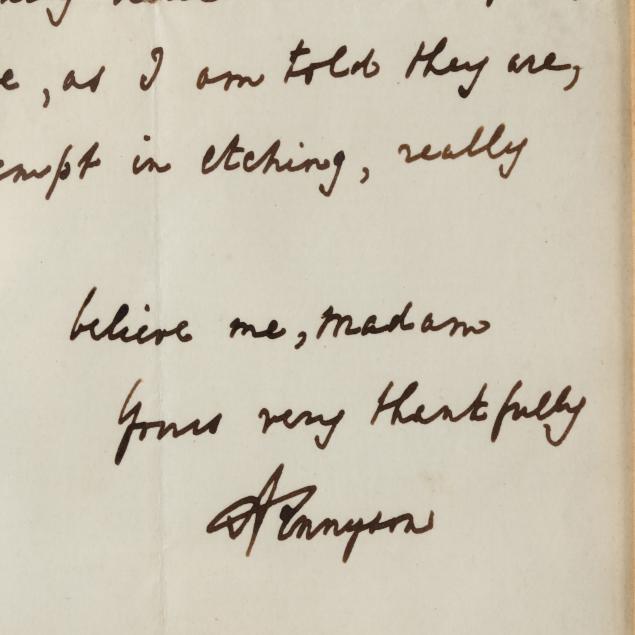 e, as I am told they are,
empt in etching, really
believe me, Madam
Yours very thankfully
ATennyson